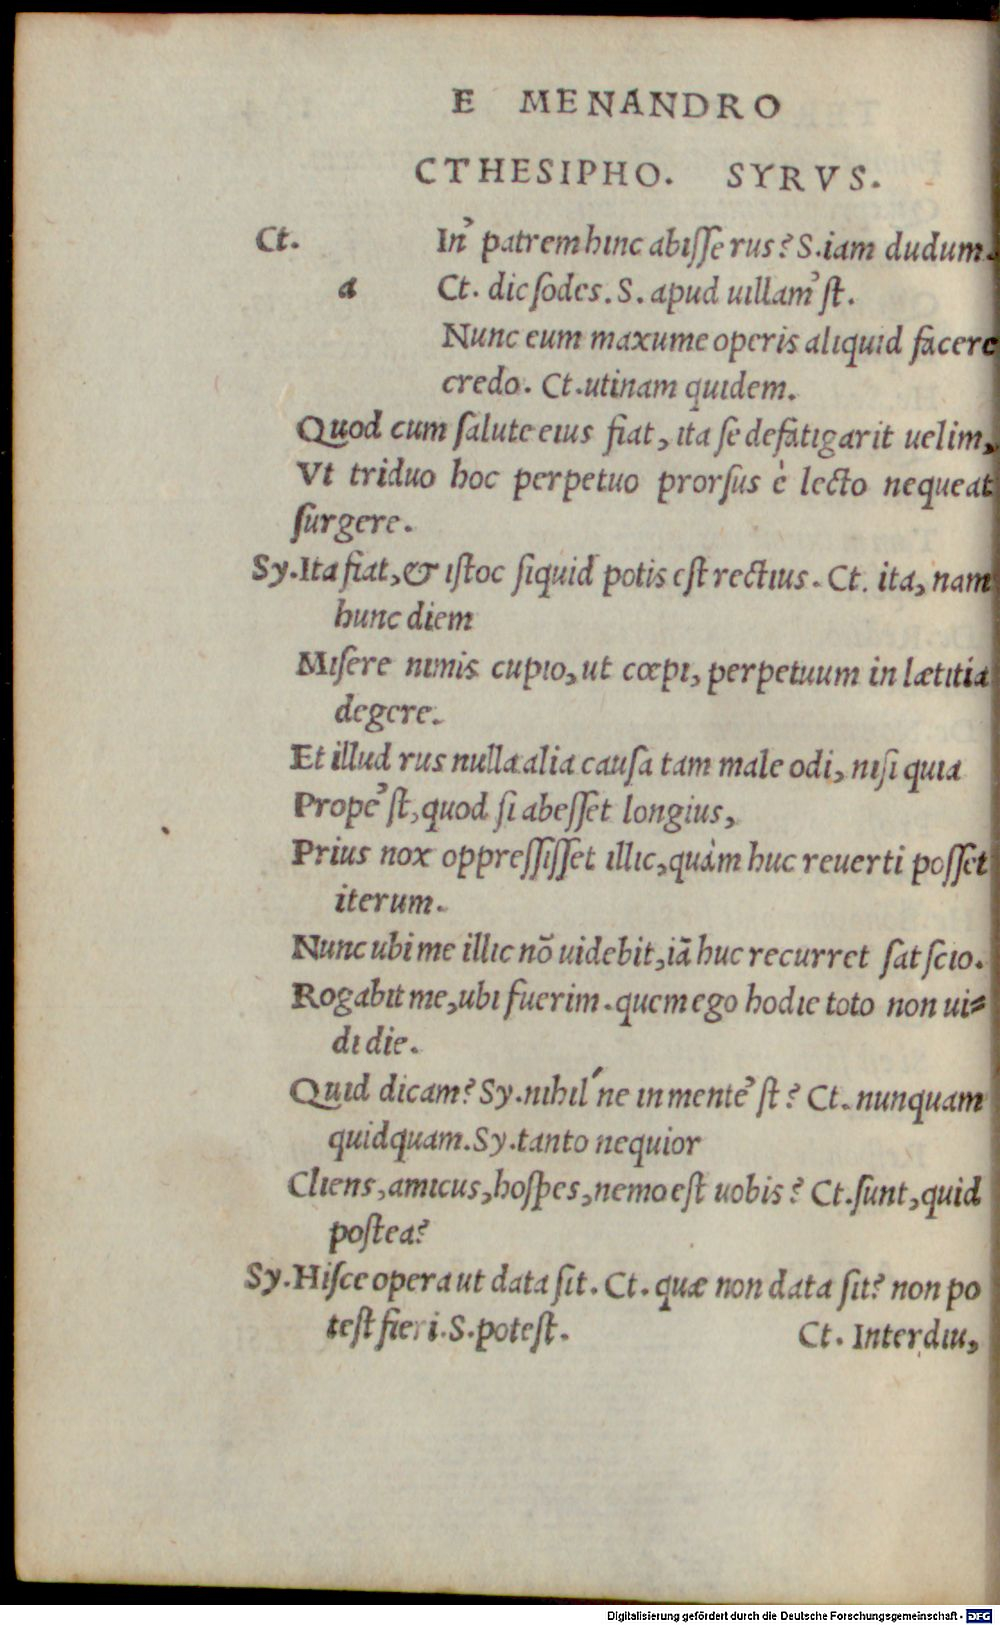 E MENANDRO
CTHESIPHO. SYRVS.
Ct. In̓ patrem hinc abiſſe rus? S. iam dudum.
a Ct. dic ſodes. S. apud uillam̓ ſt.
Nunc eum maxume operis aliquid facere
credo. Ct. utinam quidem.
Quod cum ſalute eius fiat, ita ſe defatigarit uelim,
Vt triduo hoc perpetuo prorſus è lecto nequeat
ſurgere.
Sy. Ita fiat, & iſtoc ſiquid potis eſt rectius. Ct. ita, nam
hunc diem
Miſere nimis cupio, ut cœpi, perpetuum in lætitia
degere.
Et illud rus nulla alia cauſa tam male odi, niſi quia
Prope̓ ſt, quod ſi abeſſet longius,
Prius nox oppreſſiſſet illic, quàm huc reuerti poſſet
iterum.
Nunc ubi me illic nō uidebit, iā huc recurret ſat ſcio.
Rogabit me, ubi fuerim. quem ego hodie toto non ui⸗
di die.
Quid dicam? Sy. nihil ́ne in mente̓ ſt? Ct. nunquam
quidquam. Sy. tanto nequior
Cliens, amicus, hoſpes, nemo eſt uobis? Ct. ſunt, quid
poſtea?
Sy. Hiſce opera ut data ſit. Ct. quæ non data ſit? non po
teſt fieri. S. poteſt. Ct. Interdiu,
Digitalisierung gefördert durch die Deutsche Forschungsgemeinschaft - DFG